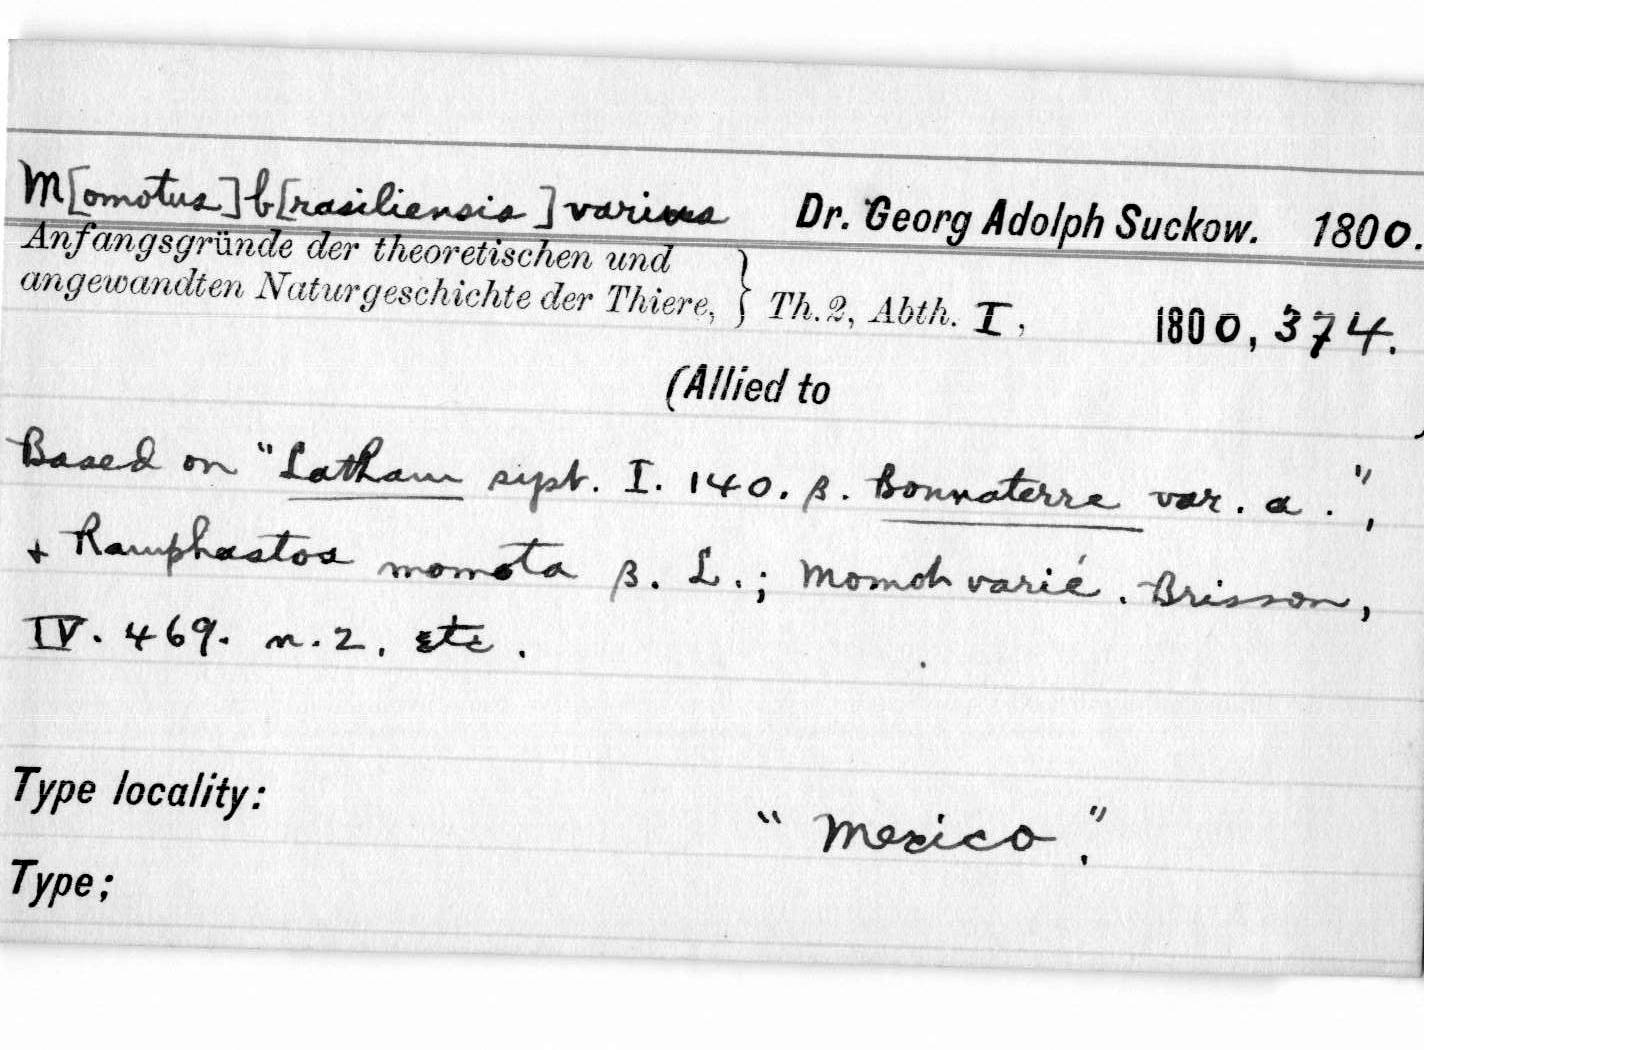 M[omotus] b[rasiliensis] varius Dr. Georg Adolph Suckow. 1800.
Anfangsgründe der theoretischen und
angewandten Naturgeschichte der Thiere, } Th. 2, Abth. I, 1800, 374.
(Allied to )
Based on "Latham syst. I. 140. β. Bonnaterre var. a.",
+ Ramphastos momota β. L.; Momot varié. Brisson,
IV. 469. n. 2. etc.
Type locality:
"Mexico."
Type;